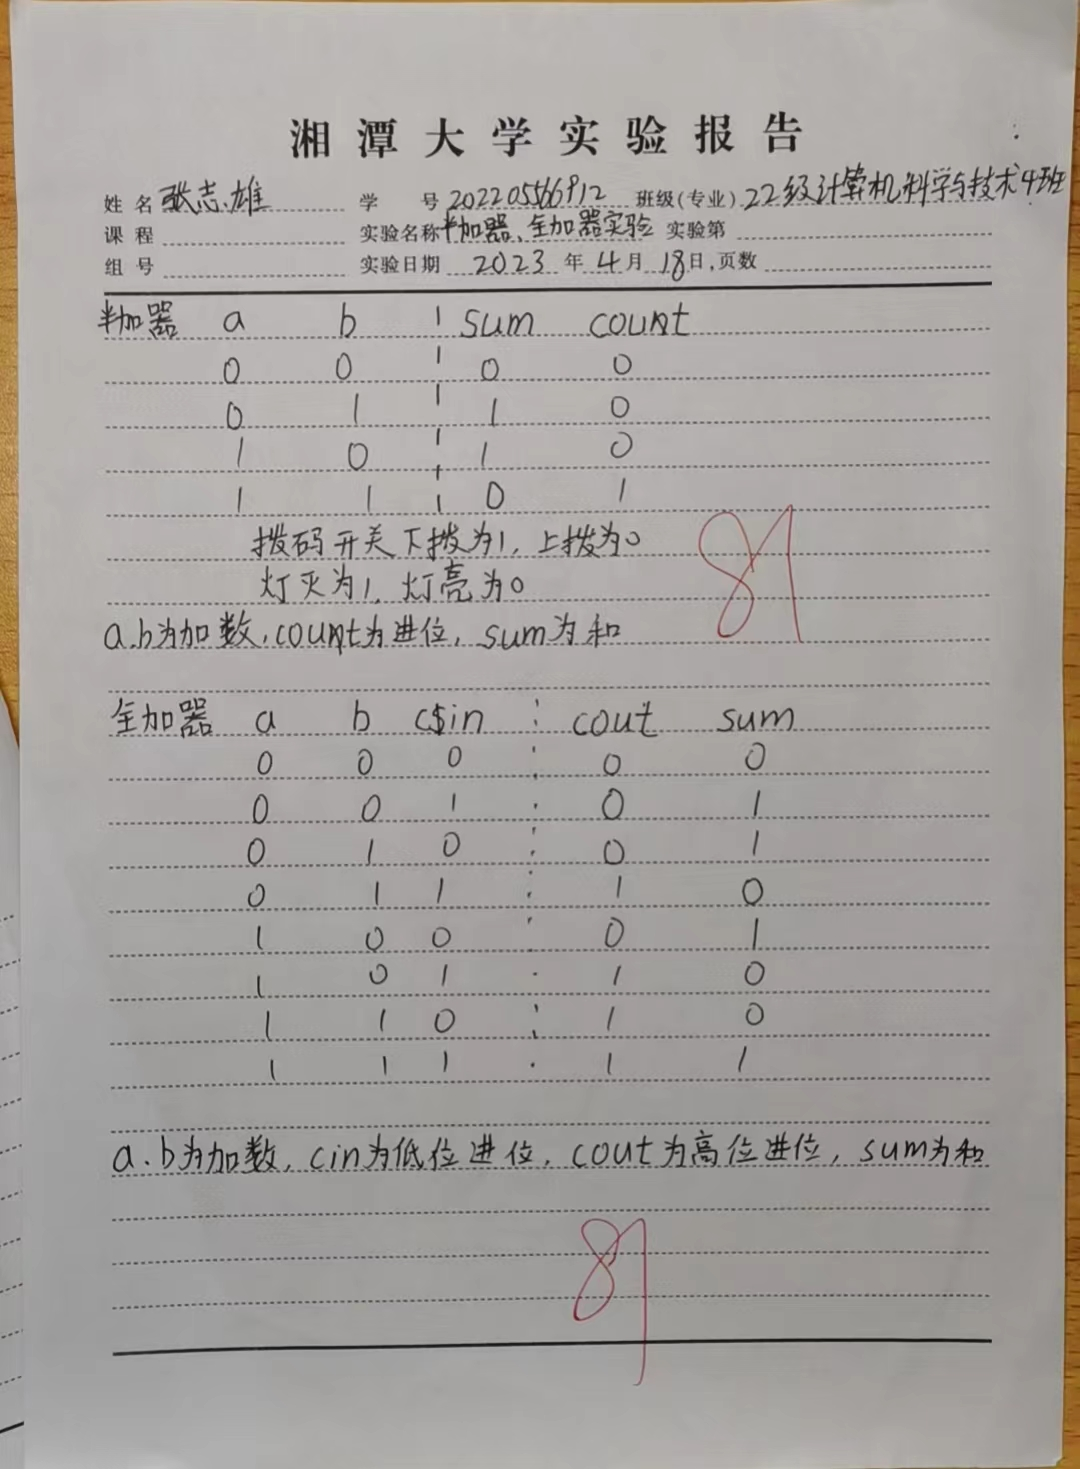 湘潭大学实验报告
姓名 张志雄 学号 202205566912 班级(专业) 22级计算机科学与技术4班
课程 实验名称 半加器、全加器实验 实验第
组号 实验日期 2023 年 4 月 18 日,页数
半加器 a b sum count
0 0 0 0
0 1 1 0
1 0 1 0
1 1 0 1
拨码开关下拨为1,上拨为0
灯灭为1,灯亮为0
a.b为加数,count为进位,sum为和
全加器 a b cin cout sum
0 0 0 0 0
0 0 1 0 1
0 1 0 0 1
0 1 1 1 0
1 0 0 0 1
1 0 1 1 0
1 1 0 1 0
1 1 1 1 1
a.b为加数,cin为低位进位,cout为高位进位,sum为和